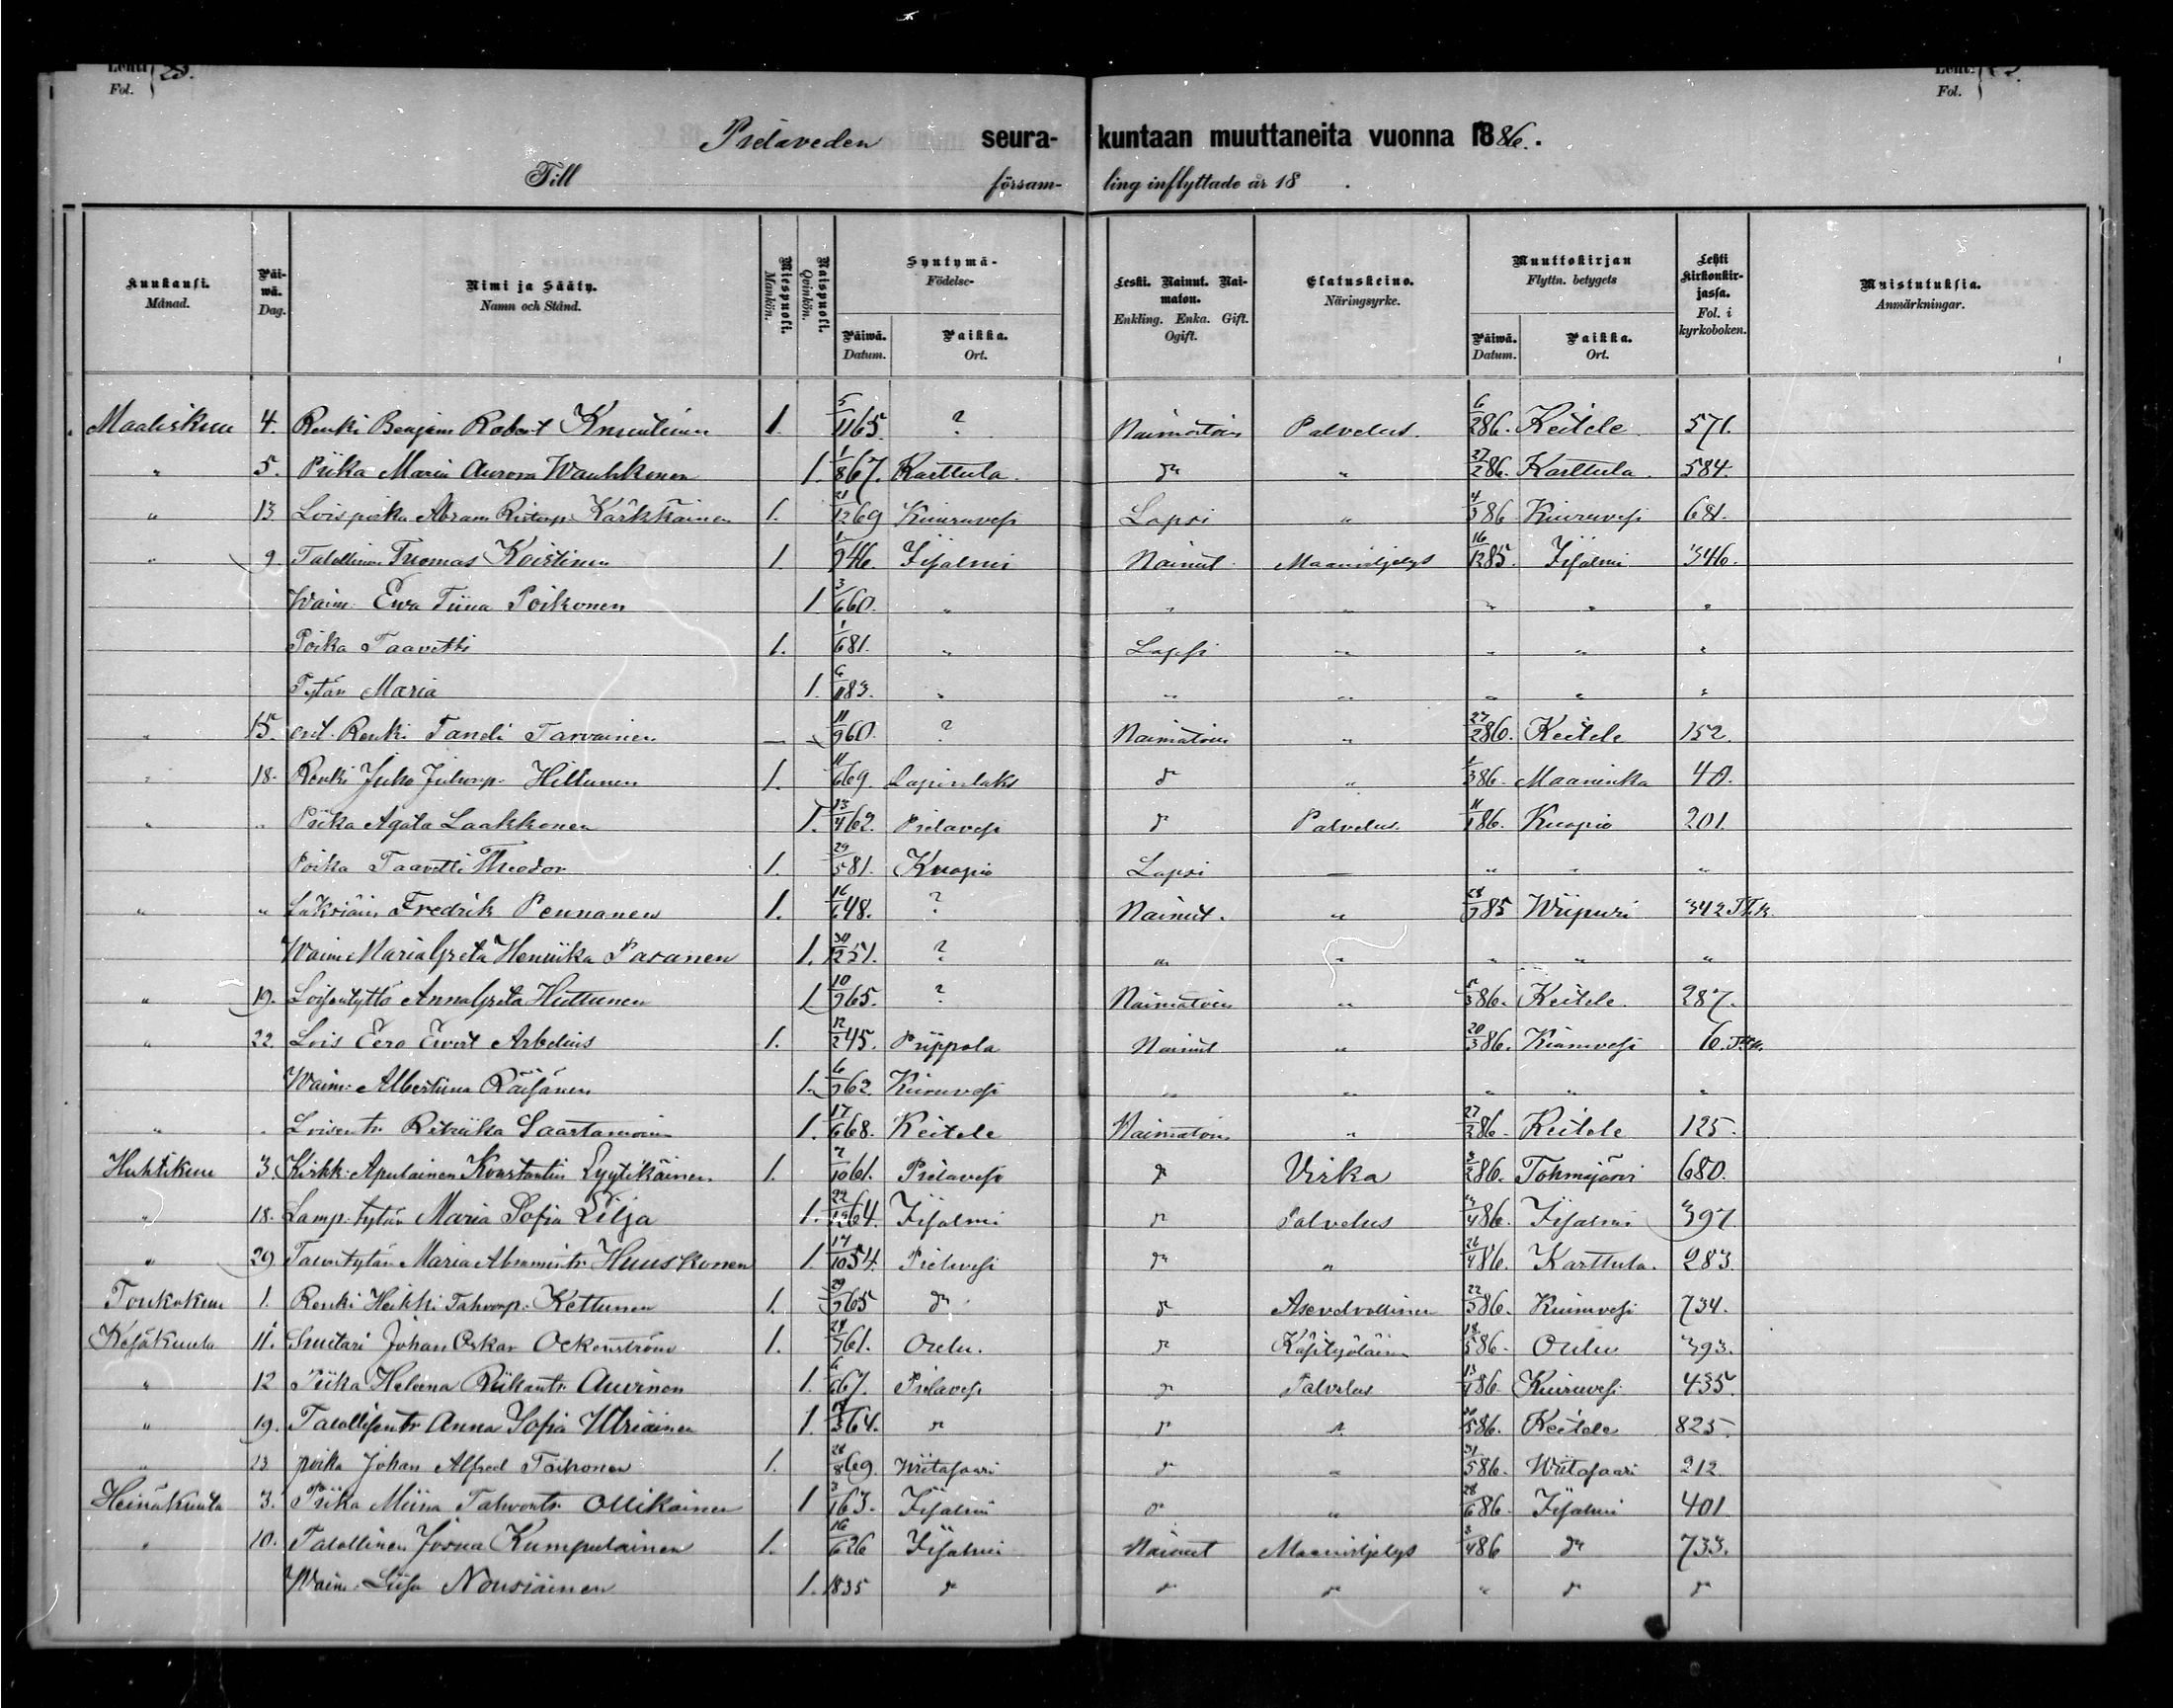 Lehti 23.
Fol.
Lehti 23.
Fol.
Pielaveden seura- kuntaan muuttaneita vuonna 1886.
Till försam- ling inflyttade år 18 .
Kuukausi. Månad. Päi-wä. Dag. Nimi ja Sääty. Namn och Stånd. Miespuoli. Mankön. Naispuoli. Qvinkön. Syntymä- Födelse- Päiwä. Datum. Paikka. Ort. Leski. Nainut. Nai-maton. Enkling. Enka. Gift. Ogift. Elatuskeino. Näringsyrke. Muuttokirjan Flyttn. betygets Päiwä. Datum. Paikka. Ort. Lehti kirkonkir-jassa. Fol. i kyrkoboken. Muistutuksia. Anmärkningar.
Maaliskuu 4. Renki Benjam Robert Knuutinen 1. 5/11 65. ? Naimatoin Palvelus. 6/2 86. Keitele 571.
" 5. Piika Maria Aurora Wauhkonen 1. 1/8 67. Karttula. do " 27/2 86. Karttula. 584.
" 13. Loispoika Abram Ristonp. Kärkkäinen 1. 21/12 69 Kiuruvesi Lapsi " 4/3 86 Kiuruvesi 681.
" 9. Talollinen Tuomas Koistinen 1 1/9 46. Iisalmi Nainut Maanviljelys 16/12 85. Iisalmi 346.
Waim. Ewa Tiina Poikonen 1 3/6 60. " " " " " "
Poika Taavetti 1. 1/6 81. " Lapsi " " " "
Tytär Maria 1. 6/11 83. " " " " " "
" 15. ent. Renki Taneli Tarvainen — — 11/9 60. ? Naimatoin " 27/2 86. Keitele 152.
" 18. Renki Juho Juhonp. Hiltunen 1. 11/6 69. Lapinlaks do " 1/3 86. Maaninka 40.
" " Piika Agata Laakkonen 1. 13/4 62. Pielavesi do Palvelus. 11/1 86. Kuopio 201.
Poika Taavetti Theodor 1. 29/5 81. Kuopio Lapsi — " " "
" " Fredrik Pennanen 1. 16/6 48. ? Nainut. " 28/7 85 Wiipuri 342 T.k.
Waim. Maria Greta Henriika Pasanen 1. 30/12 51. ? " " " " "
" 19. Loisentyttö Anna Greta Huttunen 1 10/9 65. ? Naimatoin " 5/3 86. Keitele. 287.
" 22. Lois Eero Ewert Arbelius 1. 12/2 45. Piippola Nainut " 20/3 86. Kiuruvesi 6.
Waim. Albertiina Räisänen 1. 6/9 62. Kiuruvesi " " " " "
" " Loisentr. Riikka Saastamoinen 1. 17/6 68. Keitele Naimatoin " 27/2 86. Keitele 125.
Huhtikuu 3. Kirkk. Apulainen Konstantin Lyytikäinen 1. 7/10 61. Pielavesi do Virka 3/2 86. Tohmajärvi 680.
" 18. Lamp. tytär Maria Sofia Lilja 1. 22/12 64. Iisalmi do Palvelus 86. Iisalmi 397
" 29 Talontytär Maria Abramintr. Huuskonen 1. 14/10 54. Pielavesi do " 26/4 86. Karttula. 283.
Toukokuu 1. Renki Heikki Tahvonp. Kettunen 1. 29/9 65 do do Asevelvollinen 22/3 86. Kiuruvesi 734.
Kesäkuuta 11. Suutari Johan Oskar Ockenström 1. 28/7 61. Oulu. do Käsityöläinen 18/5 86. Oulu 393.
" 12 Piika Helena Auvinen 1. 6/6 67. Pielavesi do Palvelus 13/1 86. Kiuruvesi 435.
" 19. Talollisentr. Anna Sofia Utriainen 1. 64. do do " 86. Keitele 825.
" 23 poika Johan Alfred Toikonen 1. 28/8 69. Wiitasaari do " 31/5 86. Wiitasaari 212.
Heinäkuuta 3. Piika Miina Tahvontr. Ollikainen 1 3/1 63. Iisalmi do " 28/6 86. Iisalmi 401
" 10. Talollinen Josua Kumpulainen 1. 16/6 26 Iisalmi Nainut Maanviljelys 3/4 86 do 733.
Waim. Liisa Nousiainen 1. 1835 do do do " do do